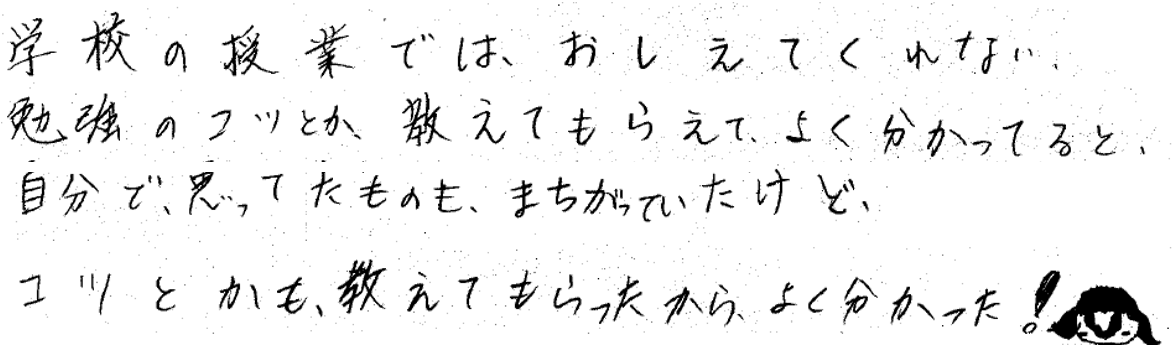 学校の授業では、おしえてくれない、
勉強のコツとか、教えてもらえて、よく分かってると、
自分で、思ってたものも、まちがっていたけど、
コツとかも、教えてもらったから、よく分かった!